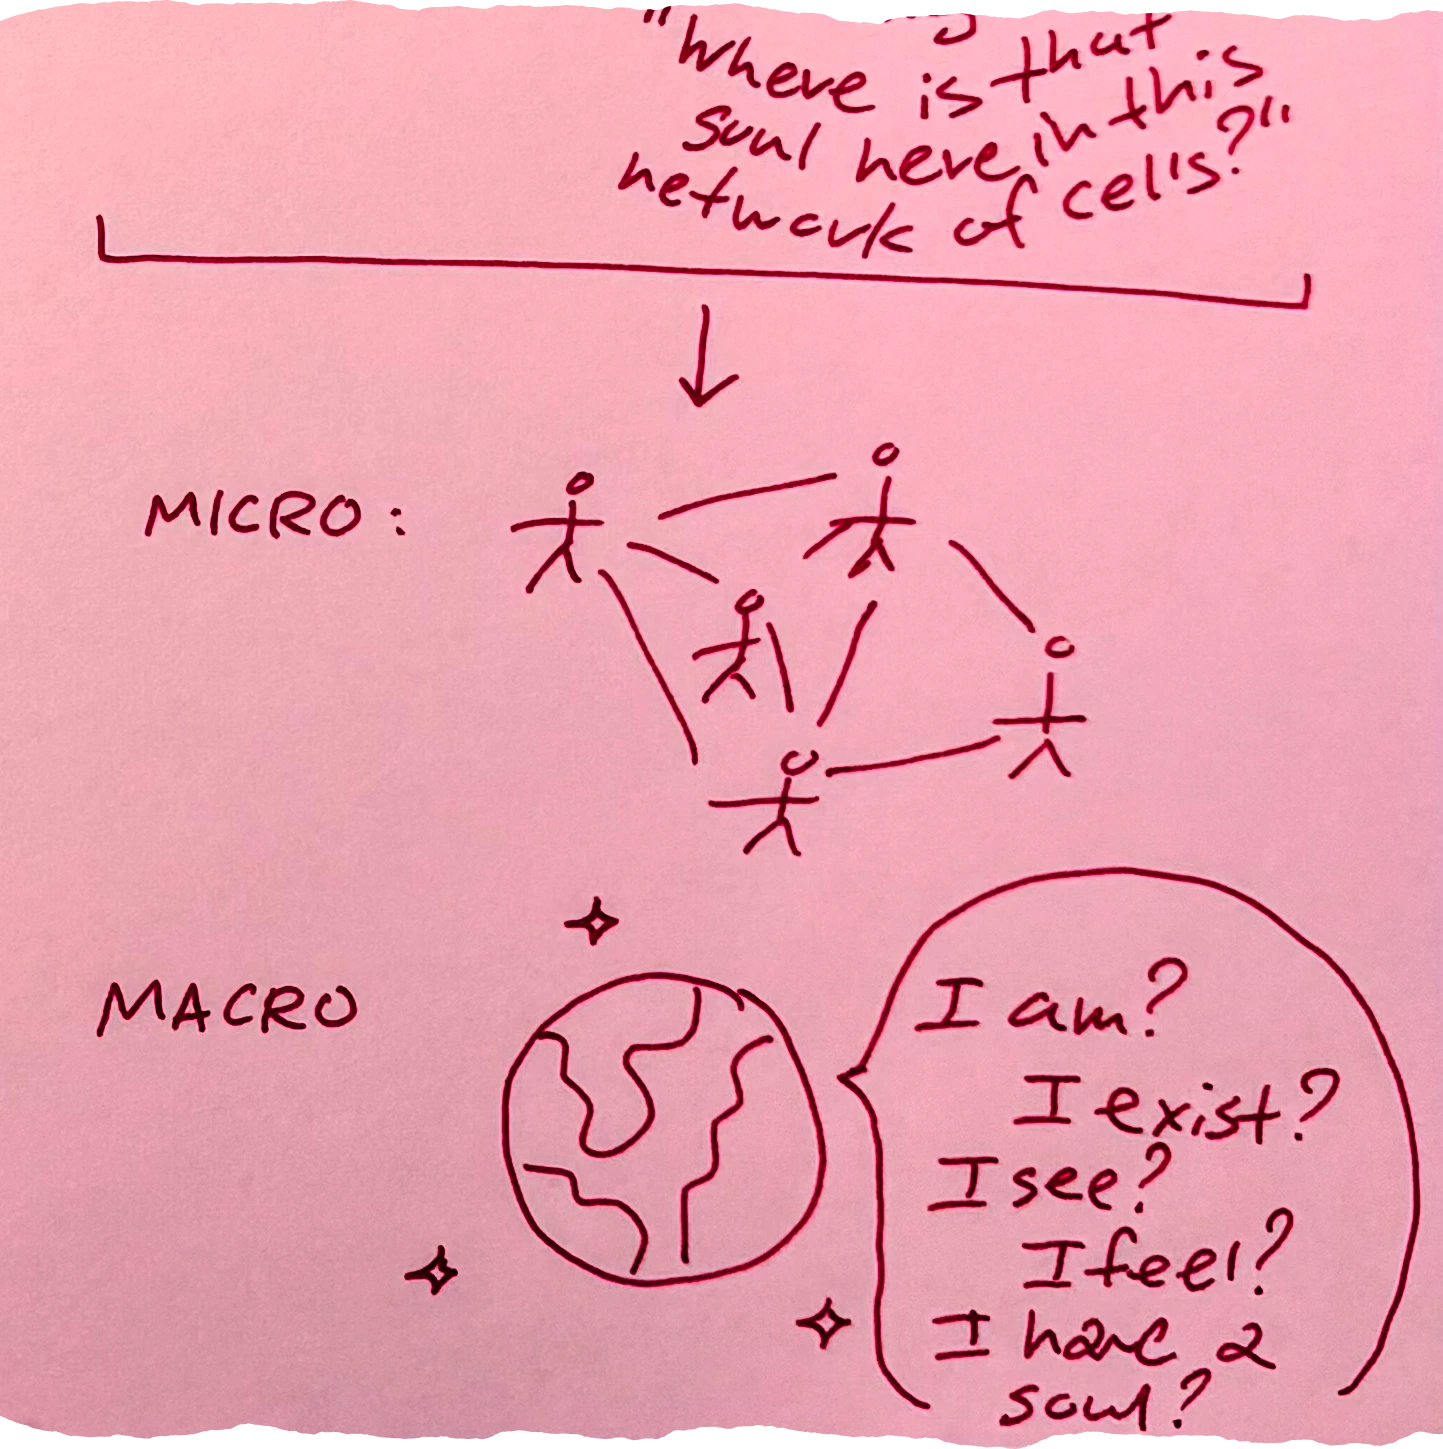 "Where is that
soul here in this
network of cells?"
MICRO:
MACRO
I am?
I exist?
I see?
I feel?
I have a
soul?